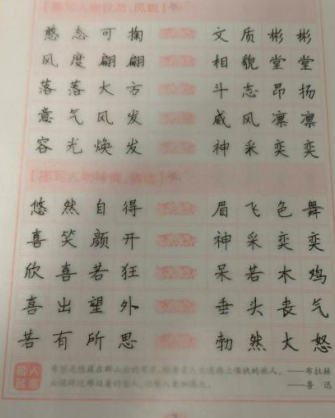 憨态可掬 文质彬彬
风度翩翩 相貌堂堂
落落大方 斗志昂扬
意气风发 威风凛凛
容光焕发 神采奕奕
悠然自得 眉飞色舞
喜笑颜开 神采奕奕
欣喜若狂 呆若木鸡
喜出望外 垂头丧气
若有所思 勃然大怒
——布拉林
——鲁迅